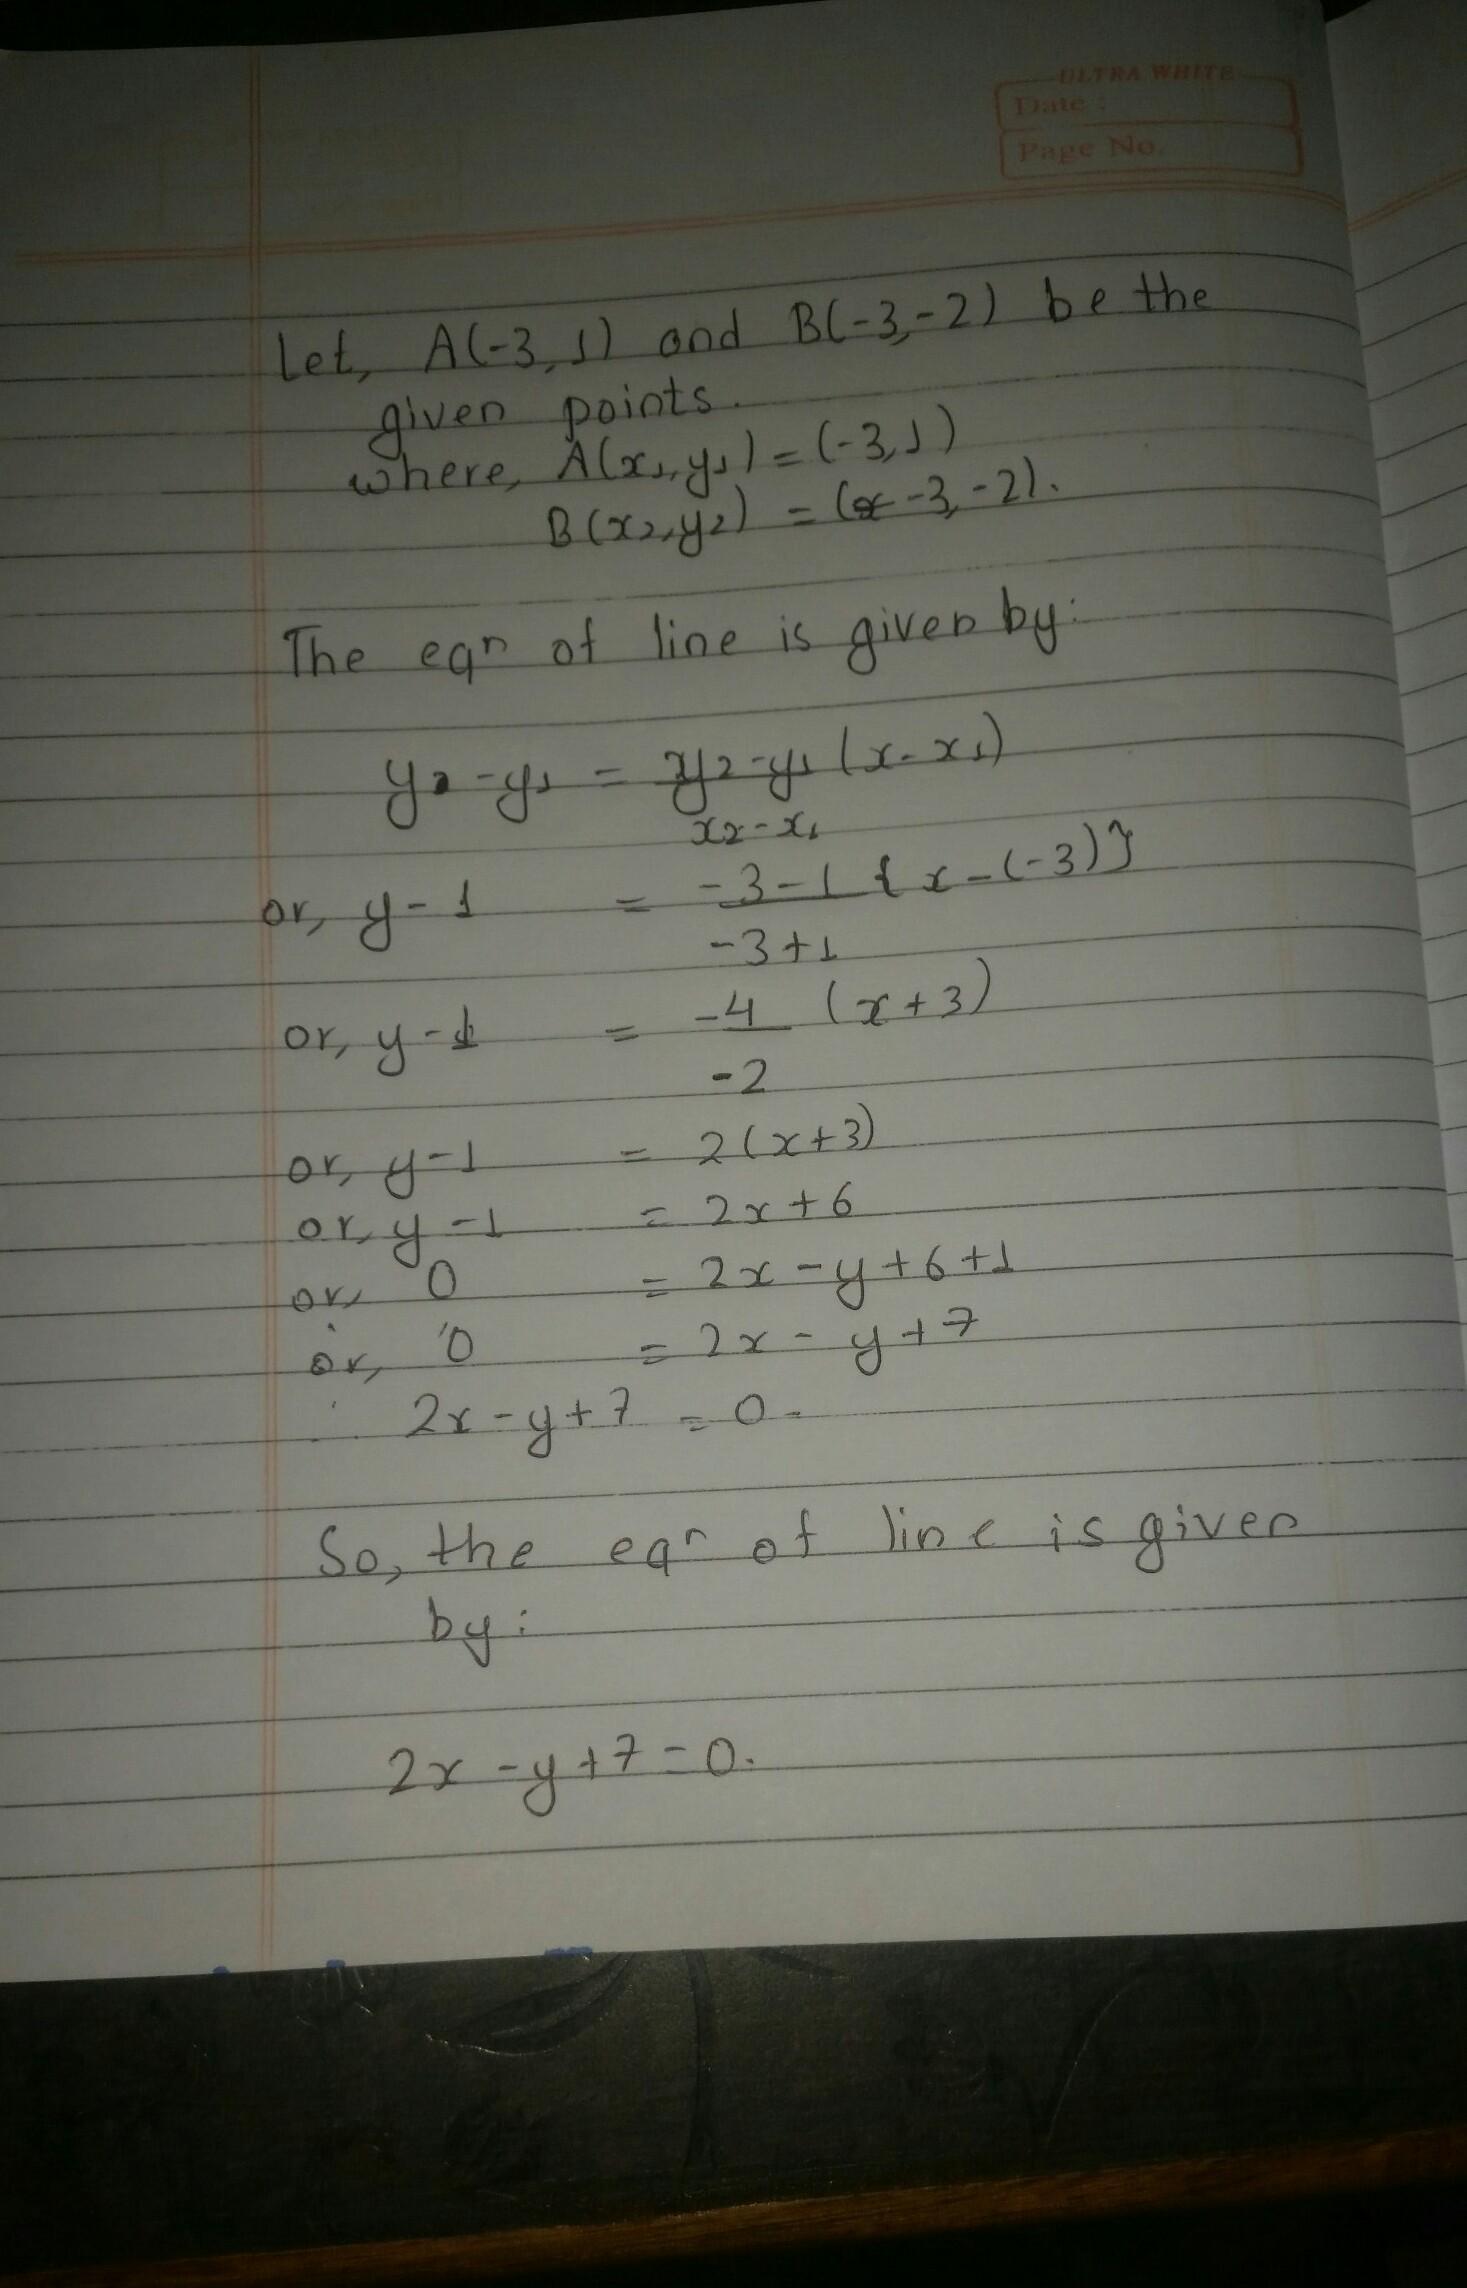 ULTRA WHITE
Date :
Page No.
Let, A(-3, 1) and B(-3,-2) be the
given points.
where, A(x₁,y₁) = (-3,1)
B(x₂,y₂) = (-3,-2).
The eqn of line is given by:
y-y₁ = y₂-y₁ (x-x₁)
x₂-x₁
or, y-1 = -3-1 {x-(-3)}
-3+1
or, y-1 = -4 (x+3)
-2
or, y-1 = 2(x+3)
or, y-1 = 2x+6
or, 0 = 2x-y+6+1
or, 0 = 2x-y+7
2x-y+7 = 0.
So, the eqn of line is given
by:
2x-y+7=0.